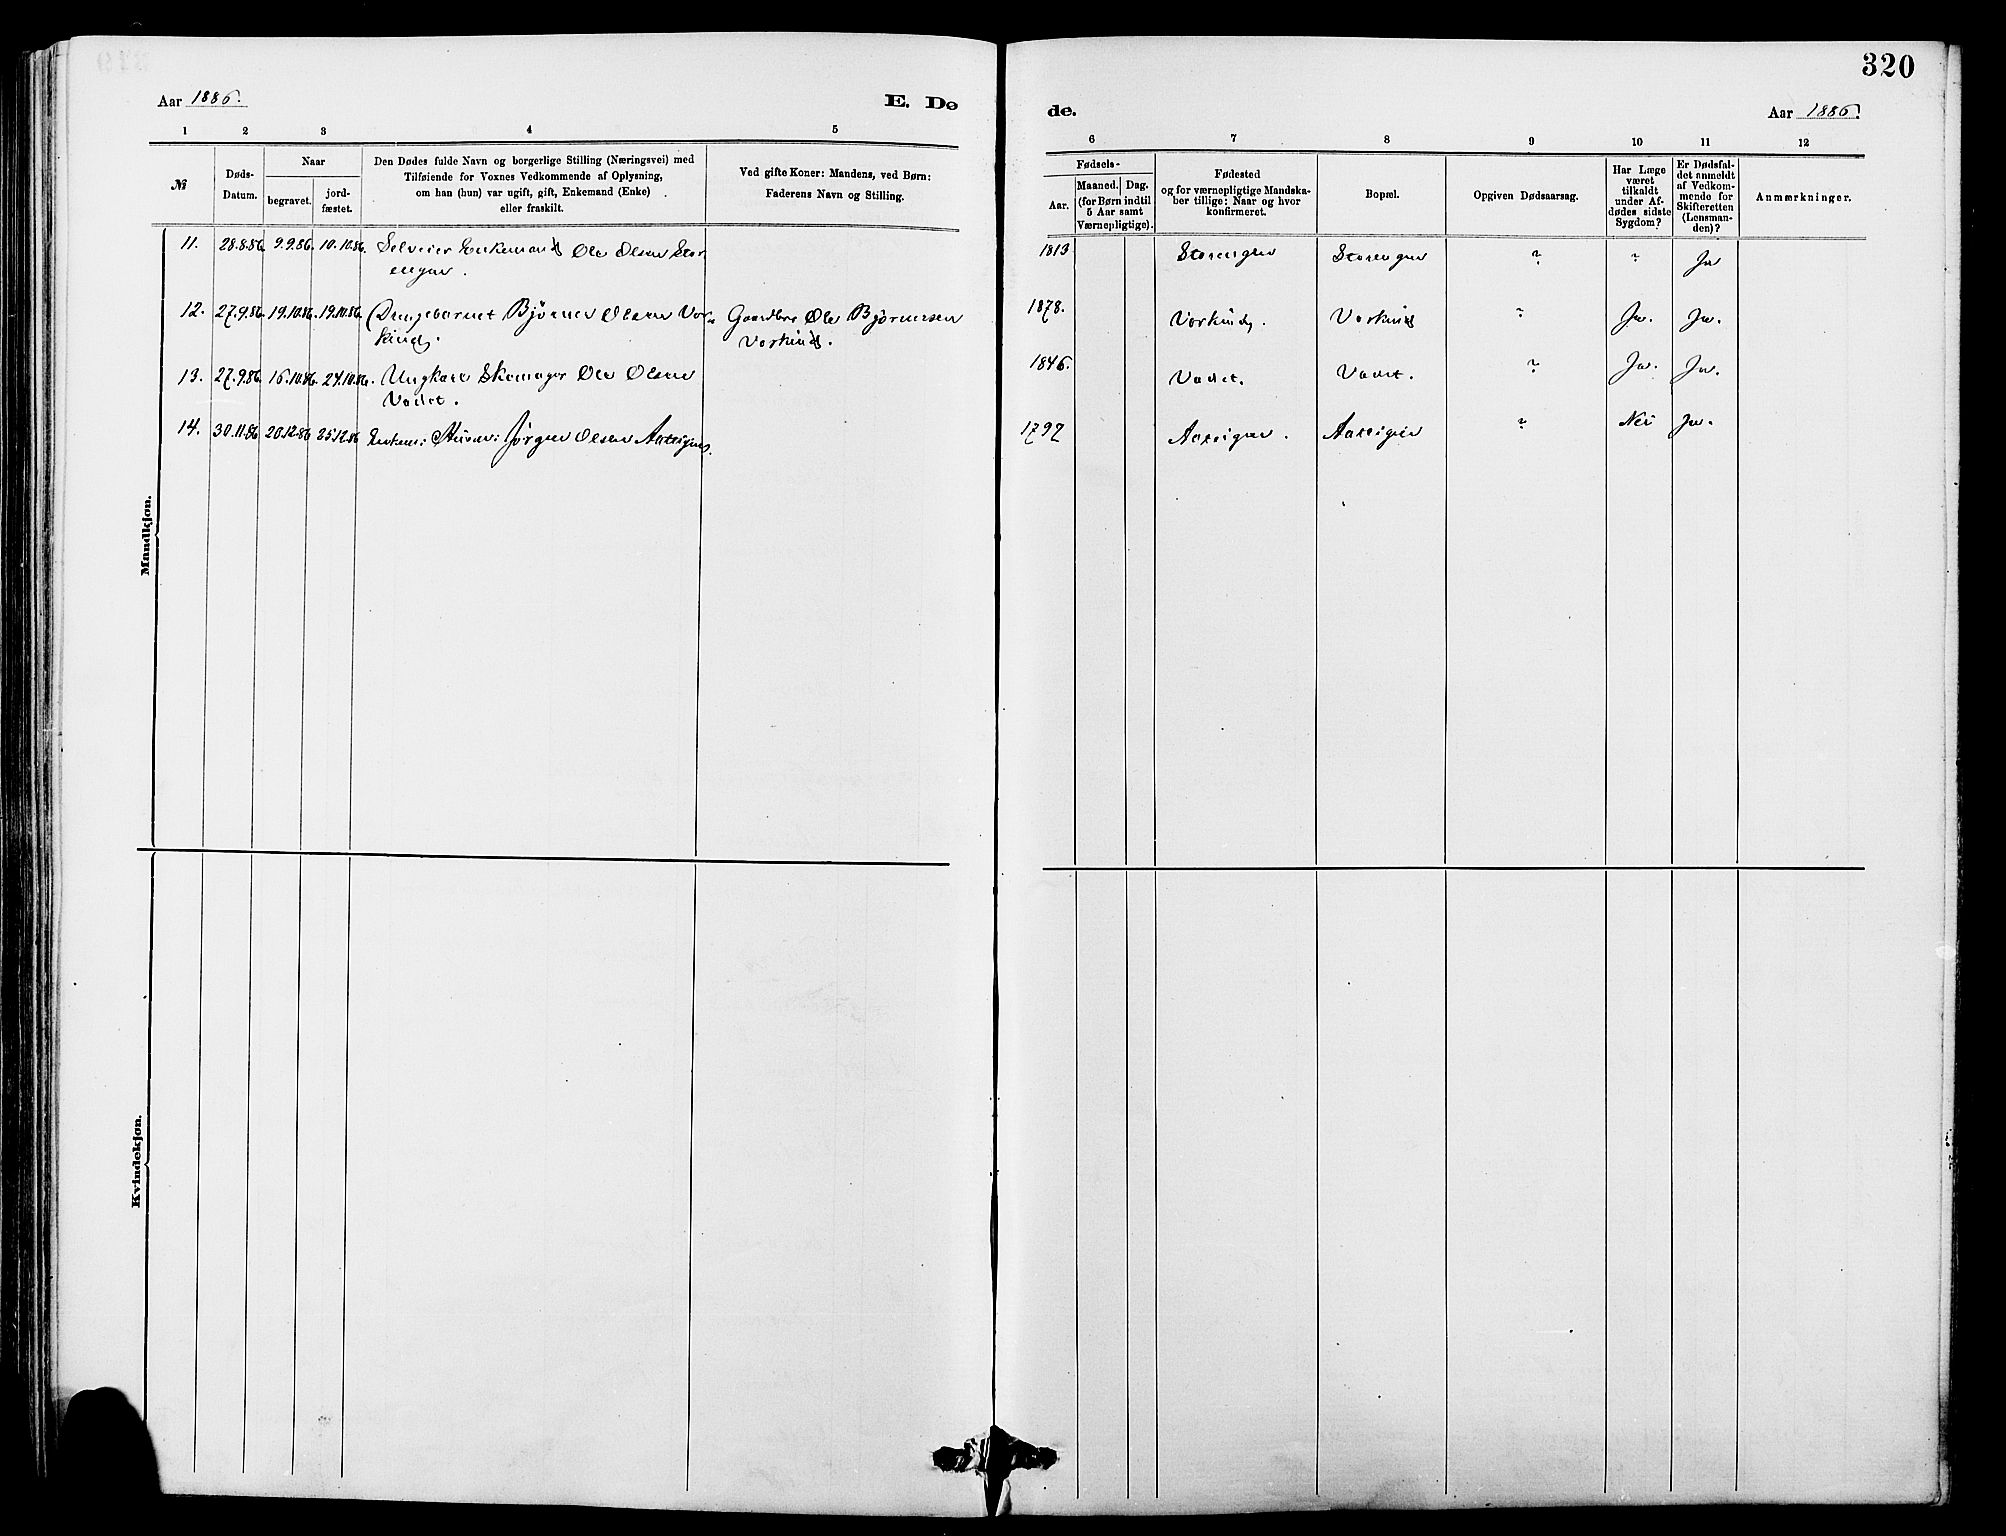 320
Aar 1886.
E. Dø
de.
Aar 1886.
1 2 3 4 5
6 7 8 9 10 11 12
№
Døds-
Datum.
Naar
begravet.
jord-
fæstet.
Den Dødes fulde Navn og borgerlige Stilling (Næringsvei) med
Tilføiende for Voxnes Vedkommende af Oplysning,
om han (hun) var ugift, gift, Enkemand (Enke)
eller fraskilt.
Ved gifte Koner: Mandens, ved Børn:
Faderens Navn og Stilling.
Fødsels-
Aar.
Maaned. Dag.
(for Børn indtil
5 Aar samt
Værnepligtige).
Fødested
og for værnepligtige Mandska-
ber tillige: Naar og hvor
konfirmeret.
Bopæl.
Opgiven Dødsaarsag.
Har Læge
været
tilkaldt
under Af-
dødes sidste
Sygdom?
Er Dødsfal-
det anmeldt
af Vedkom-
mende for
Skifteretten
(Lensman-
den)?
Anmærkninger.
Mandkjøn.
11. 28.8.86. 9.9.86. 10.10.86. Selveier Enkemand Ole Olsen Stor
engen.
1813 Storengen Storengen ? ? Ja
12. 27.9.86. 19.10.86. 19.10.86. Drengebarnet Bjørner Olsen Vor-
kind.
Gaardbr. Ole Bjørnersen
Vorkind.
1878. Vorkind. Vorkind ? Ja. Ja.
13. 27.9.86. 16.10.86. 24.10.86. Ungkarl Skomager Ole Olsen
Vadet.
1846. Vadet. Vadet. ? Ja. Ja.
14. 30.11.86 20.12.86 25.12.86 Enkem: Jørgen Olsen
1797 ? Nei Ja.
Kvindekjøn.